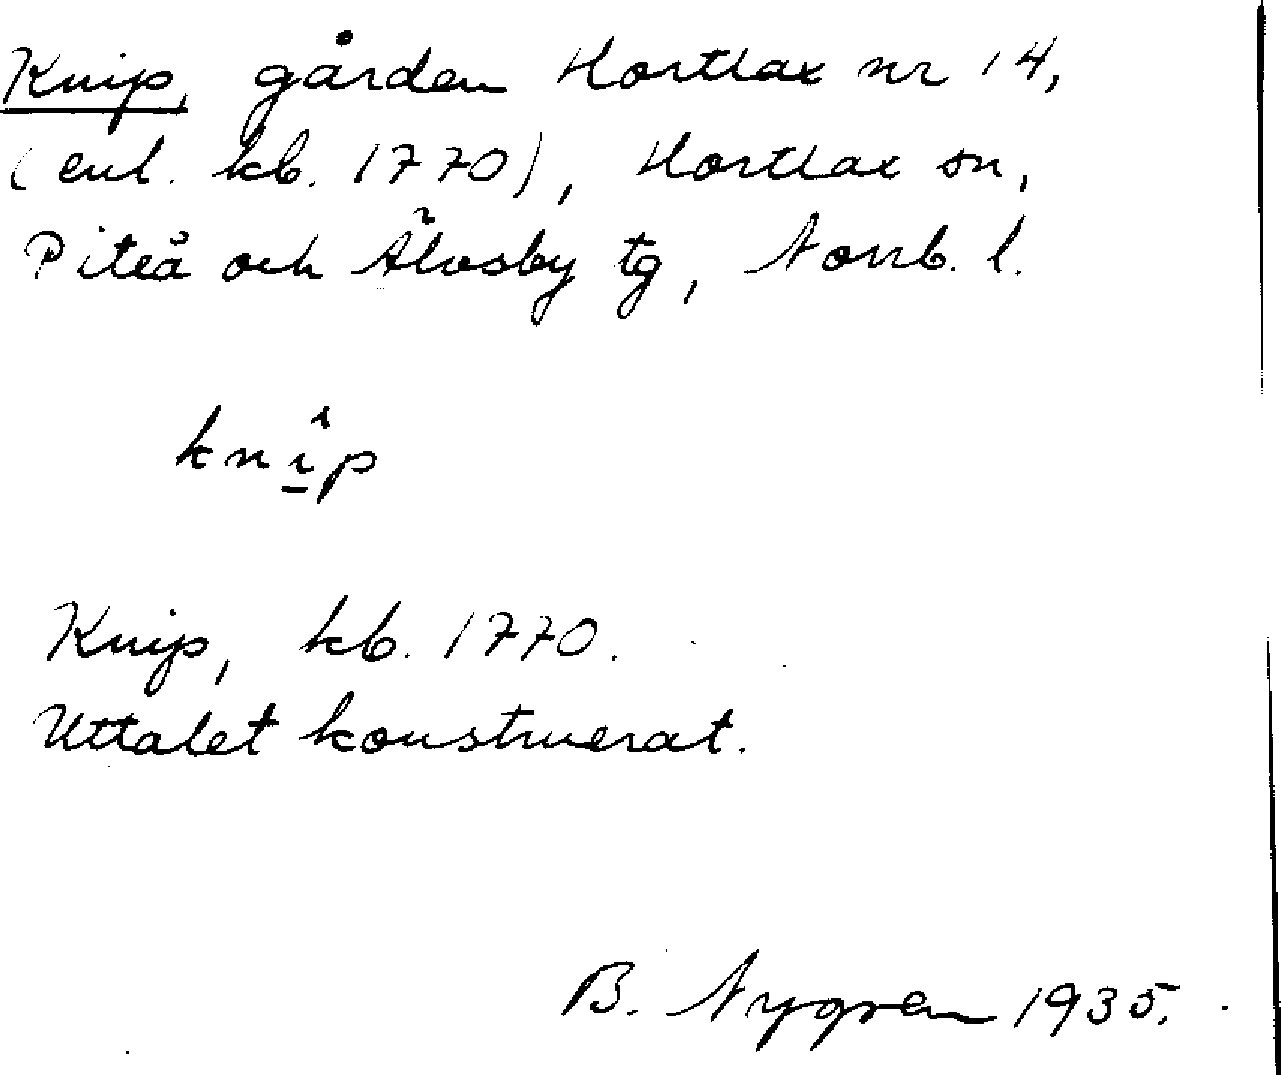 Knip, gården Hortlax nr 14,
(enl. kb. 1770), Hortlax sn,
Piteå och Älvsby tg, Norrb. l.
knî̱p
Knip, kb. 1770.
Uttalet konstruerat.
B. Nygren 1935.